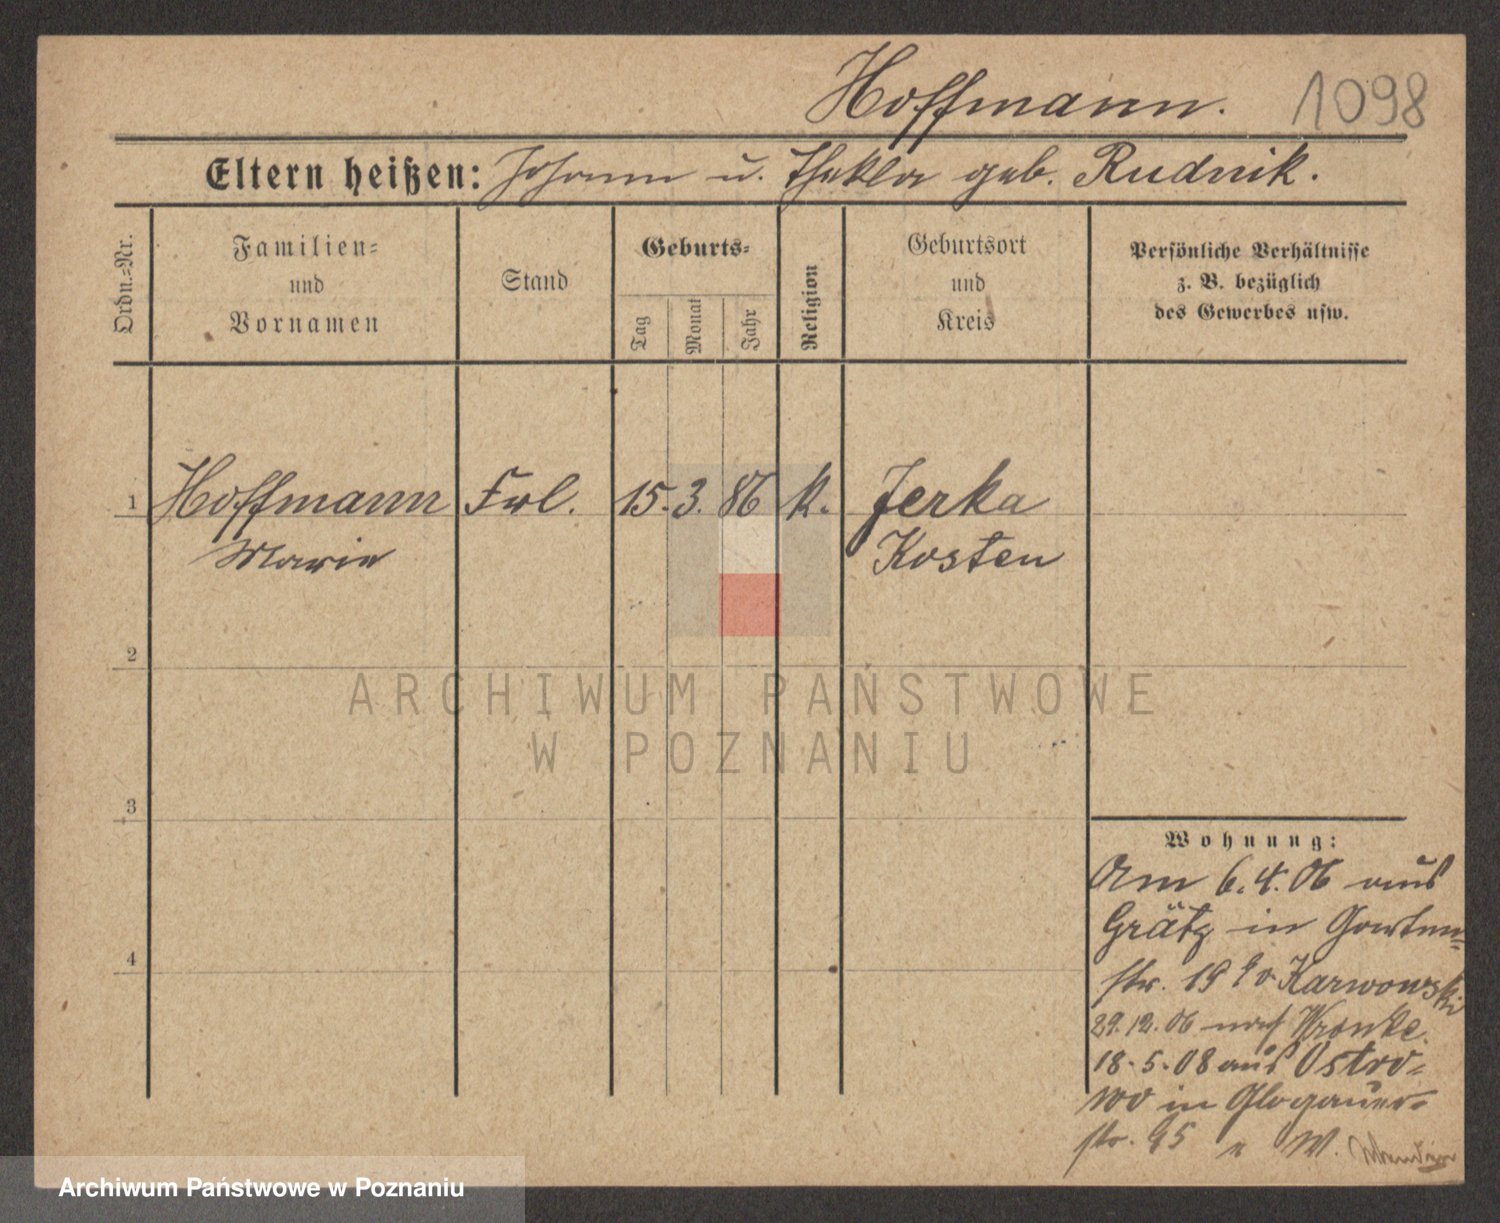 Hoffmann. 1098
Eltern heißen: Johann u. Thekla geb. Rudnik.
Ordn.=Nr.
Familien=
und
Vornamen
Stand
Geburts=
Tag
Monat
Jahr
Religion
Geburtsort
und
Kreis
Persönliche Verhältnisse
z. B. bezüglich
des Gewerbes usw.
1 Hoffmann Frl. 15. 3. 86 k. Jerka
Marie Kosten
2
ARCHIWUM PAŃSTWOWE
W POZNANIU
3
Wohnung:
Am 6.4.06 aus
Grätz in Garten=
str. 19 Karwowski
29.12.06 nach Wronke.
18.5.08 aus Ostro=
wo in Glogauer=
str. 95 W.
4
Archiwum Państwowe w Poznaniu